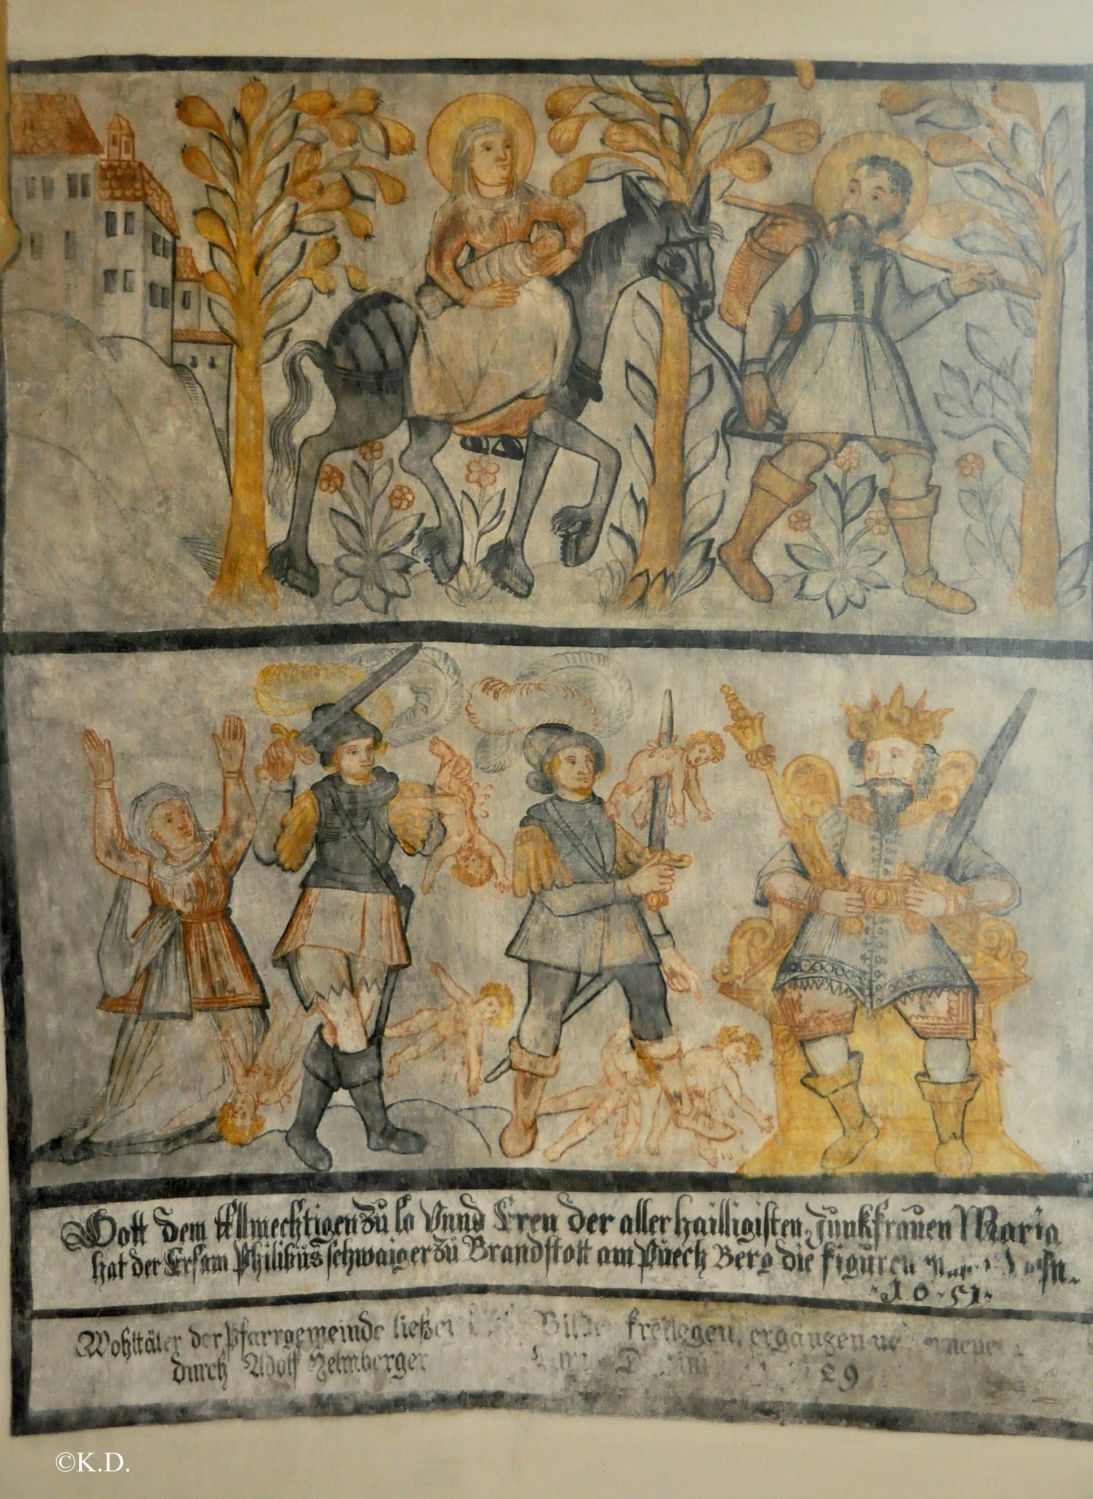 Gott dem Allmechtigen zu lo Vnnd Eren der aller hailligisten Junkfrauen Maria
hat der Ersam Philibus schwaiger zu Brandstott am Puech Berg die figuren
1651
Wohltäter der Pfarrgemeinde ließen Bilder freilegen, ergänzen
durch Adolf 29
©K.D.